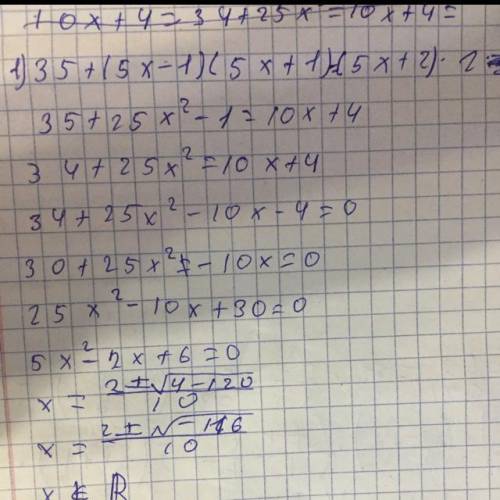 10x+4=34+25x=10x+4=
1) 35+(5x-1)(5x+1)=(5x+2)·2=
35+25x²-1=10x+4
34+25x²=10x+4
34+25x²-10x-4=0
30+25x²-10x=0
25x²-10x+30=0
5x²-2x+6=0
x = 2±√4-120 / 10
x = 2±√-116 / 10
x ∉ ℝ